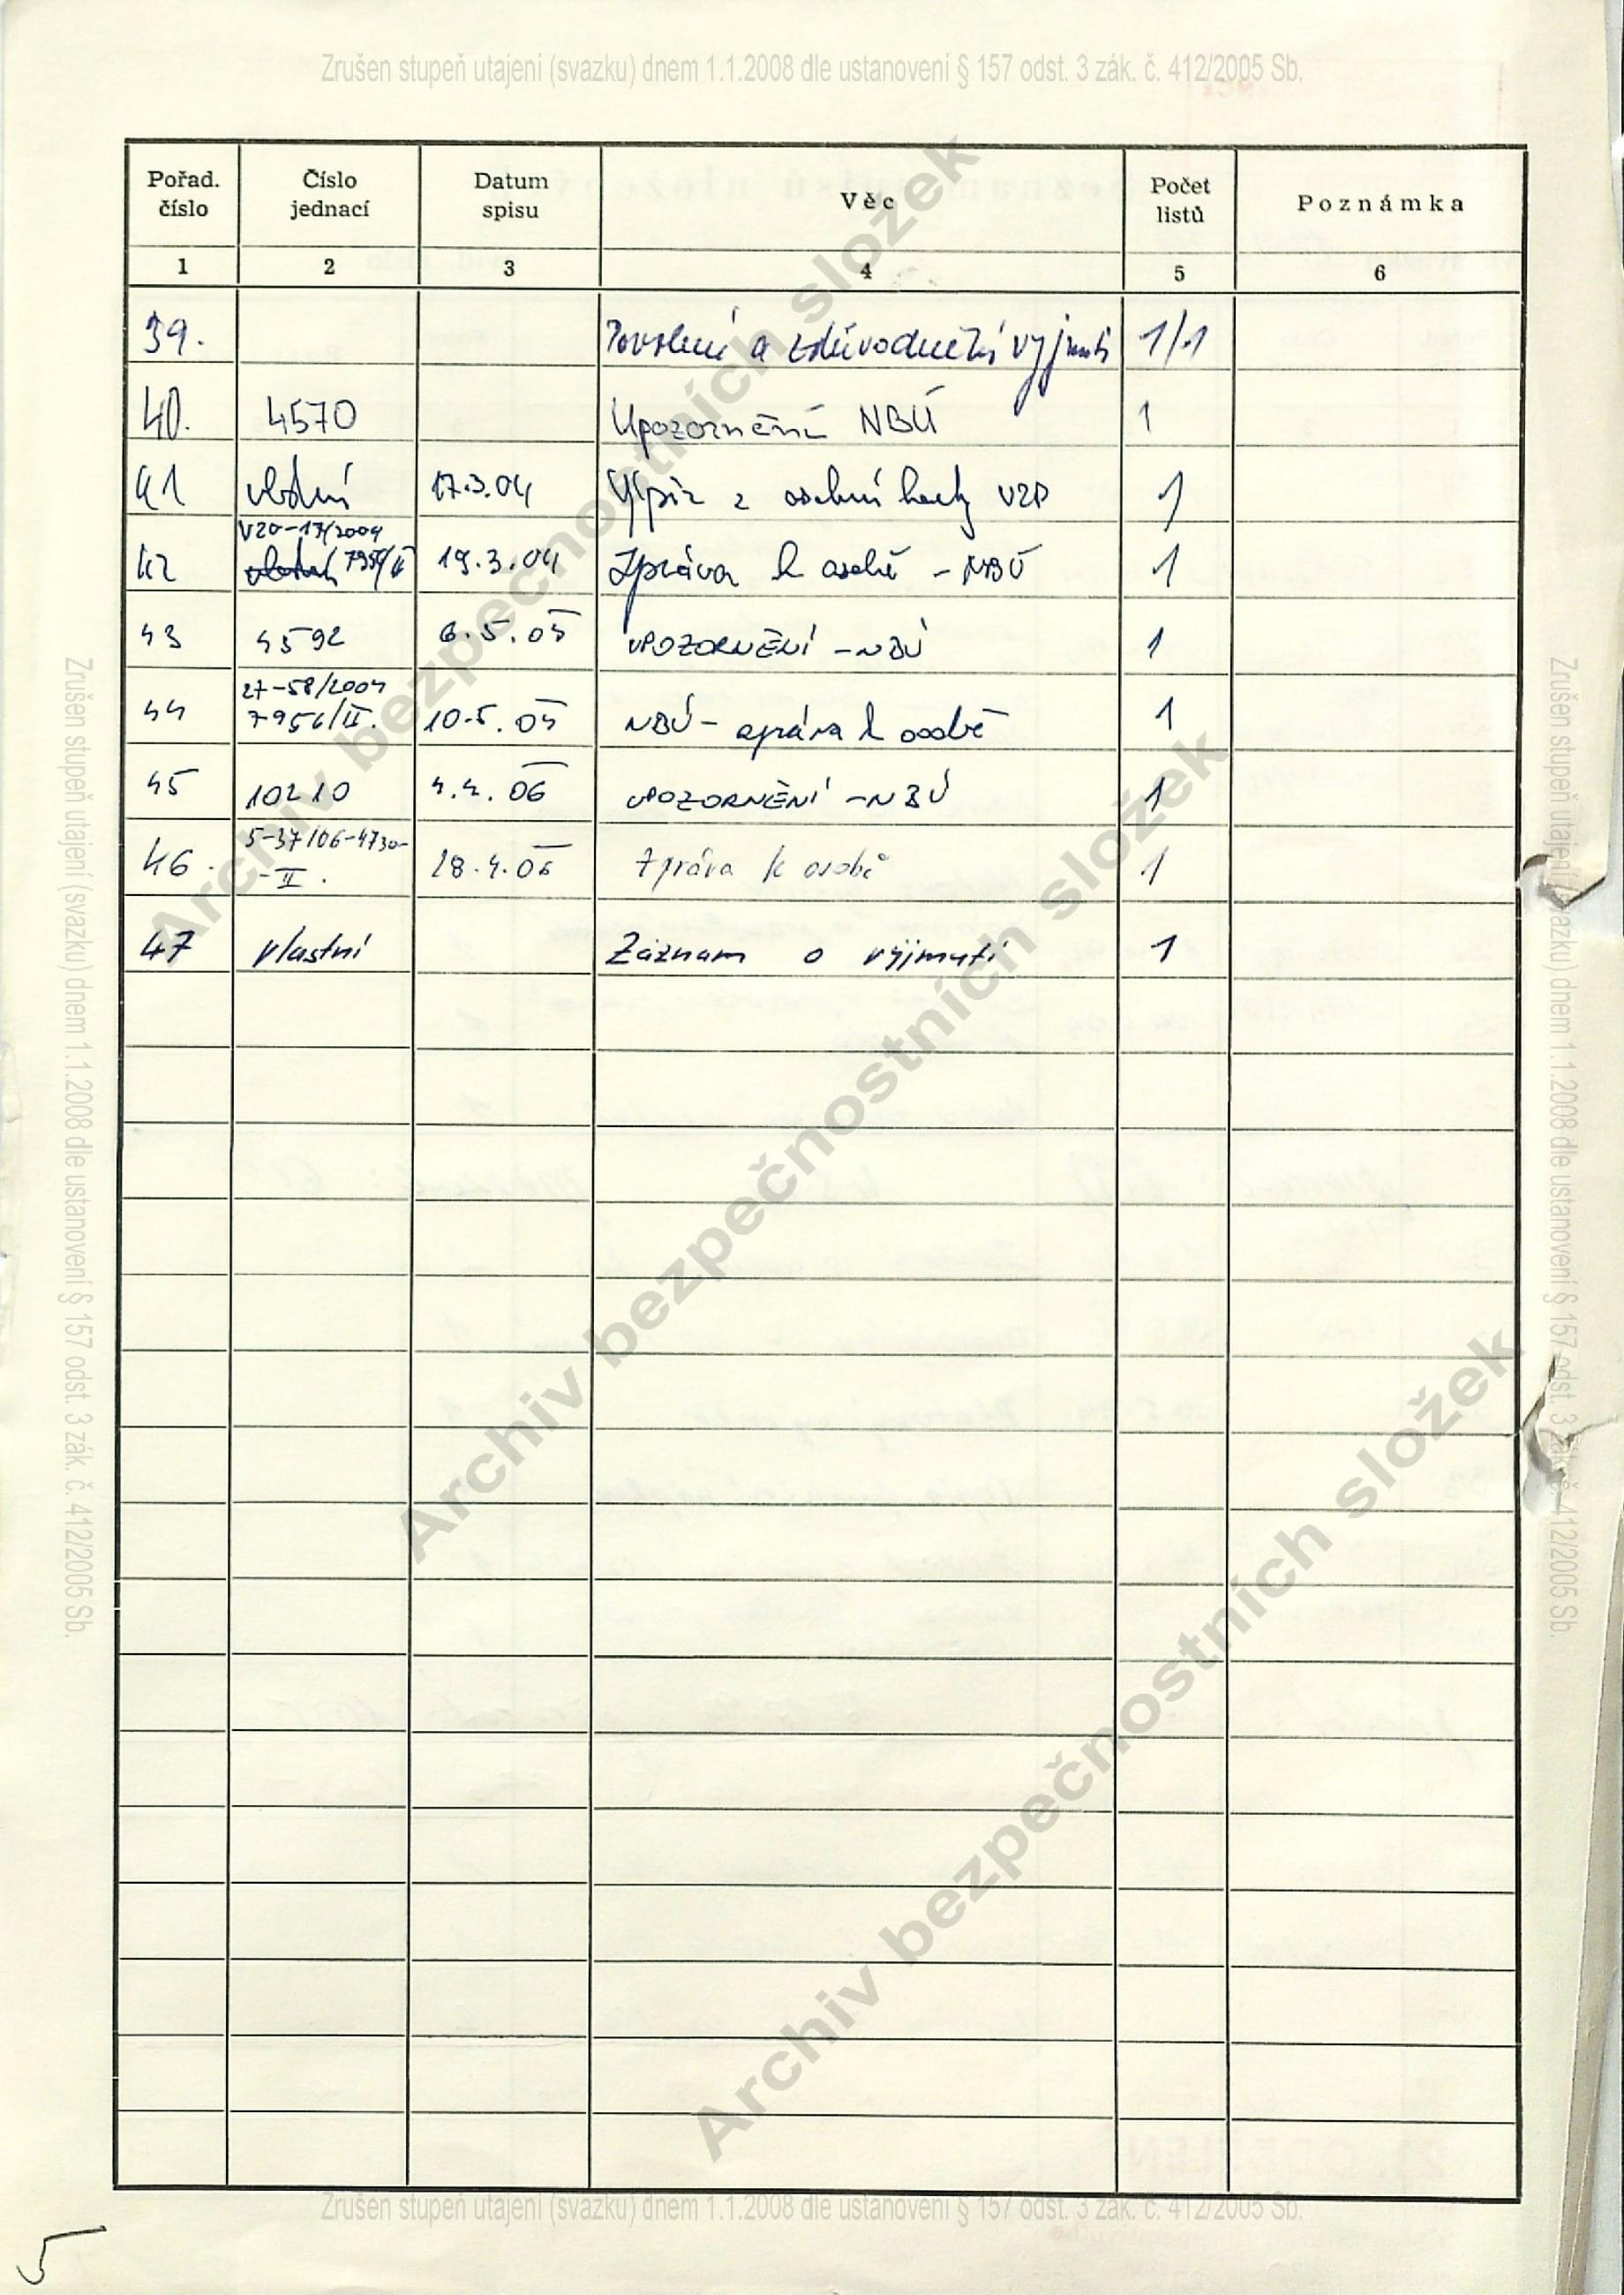 Zrušen stupeň utajení (svazku) dnem 1.1.2008 dle ustanovení § 157 odst. 3 zák. č. 412/2005 Sb.
Pořad. číslo Číslo jednací Datum spisu Věc Počet listů Poznámka
1 2 3 4 5 6
39. Povolení a zdůvodnění vyjmutí 1/1
40. 4570 Upozornění NBÚ 1
41 vlastní 17.3.04 Výpis z osobní karty 1
V20-17/2004
42 19.3.04 Zpráva k osobě - NBÚ 1
43 4592 6.5.05 UPOZORNĚNÍ - NBÚ 1
27-58/2004
44 7956/II. 10.5.05 NBÚ - zpráva k osobě 1
45 10210 4.4.06 UPOZORNĚNÍ - NBÚ 1
5-37/06-4730-
46. -II. 28.4.06 Zpráva k osobě 1
47 vlastní Záznam o vyjmutí 1
Zrušen stupeň utajení (svazku) dnem 1.1.2008 dle ustanovení § 157 odst. 3 zák. č. 412/2005 Sb.
Zrušen stupeň utajení (svazku) dnem 1.1.2008 dle ustanovení § 157 odst. 3 zák. č. 412/2005 Sb.
Archiv bezpečnostních složek
Archiv bezpečnostních složek
Archiv bezpečnostních složek
Zrušen stupeň utajení (svazku) dnem 1.1.2008 dle ustanovení § 157 odst. 3 zák. č. 412/2005 Sb.
5